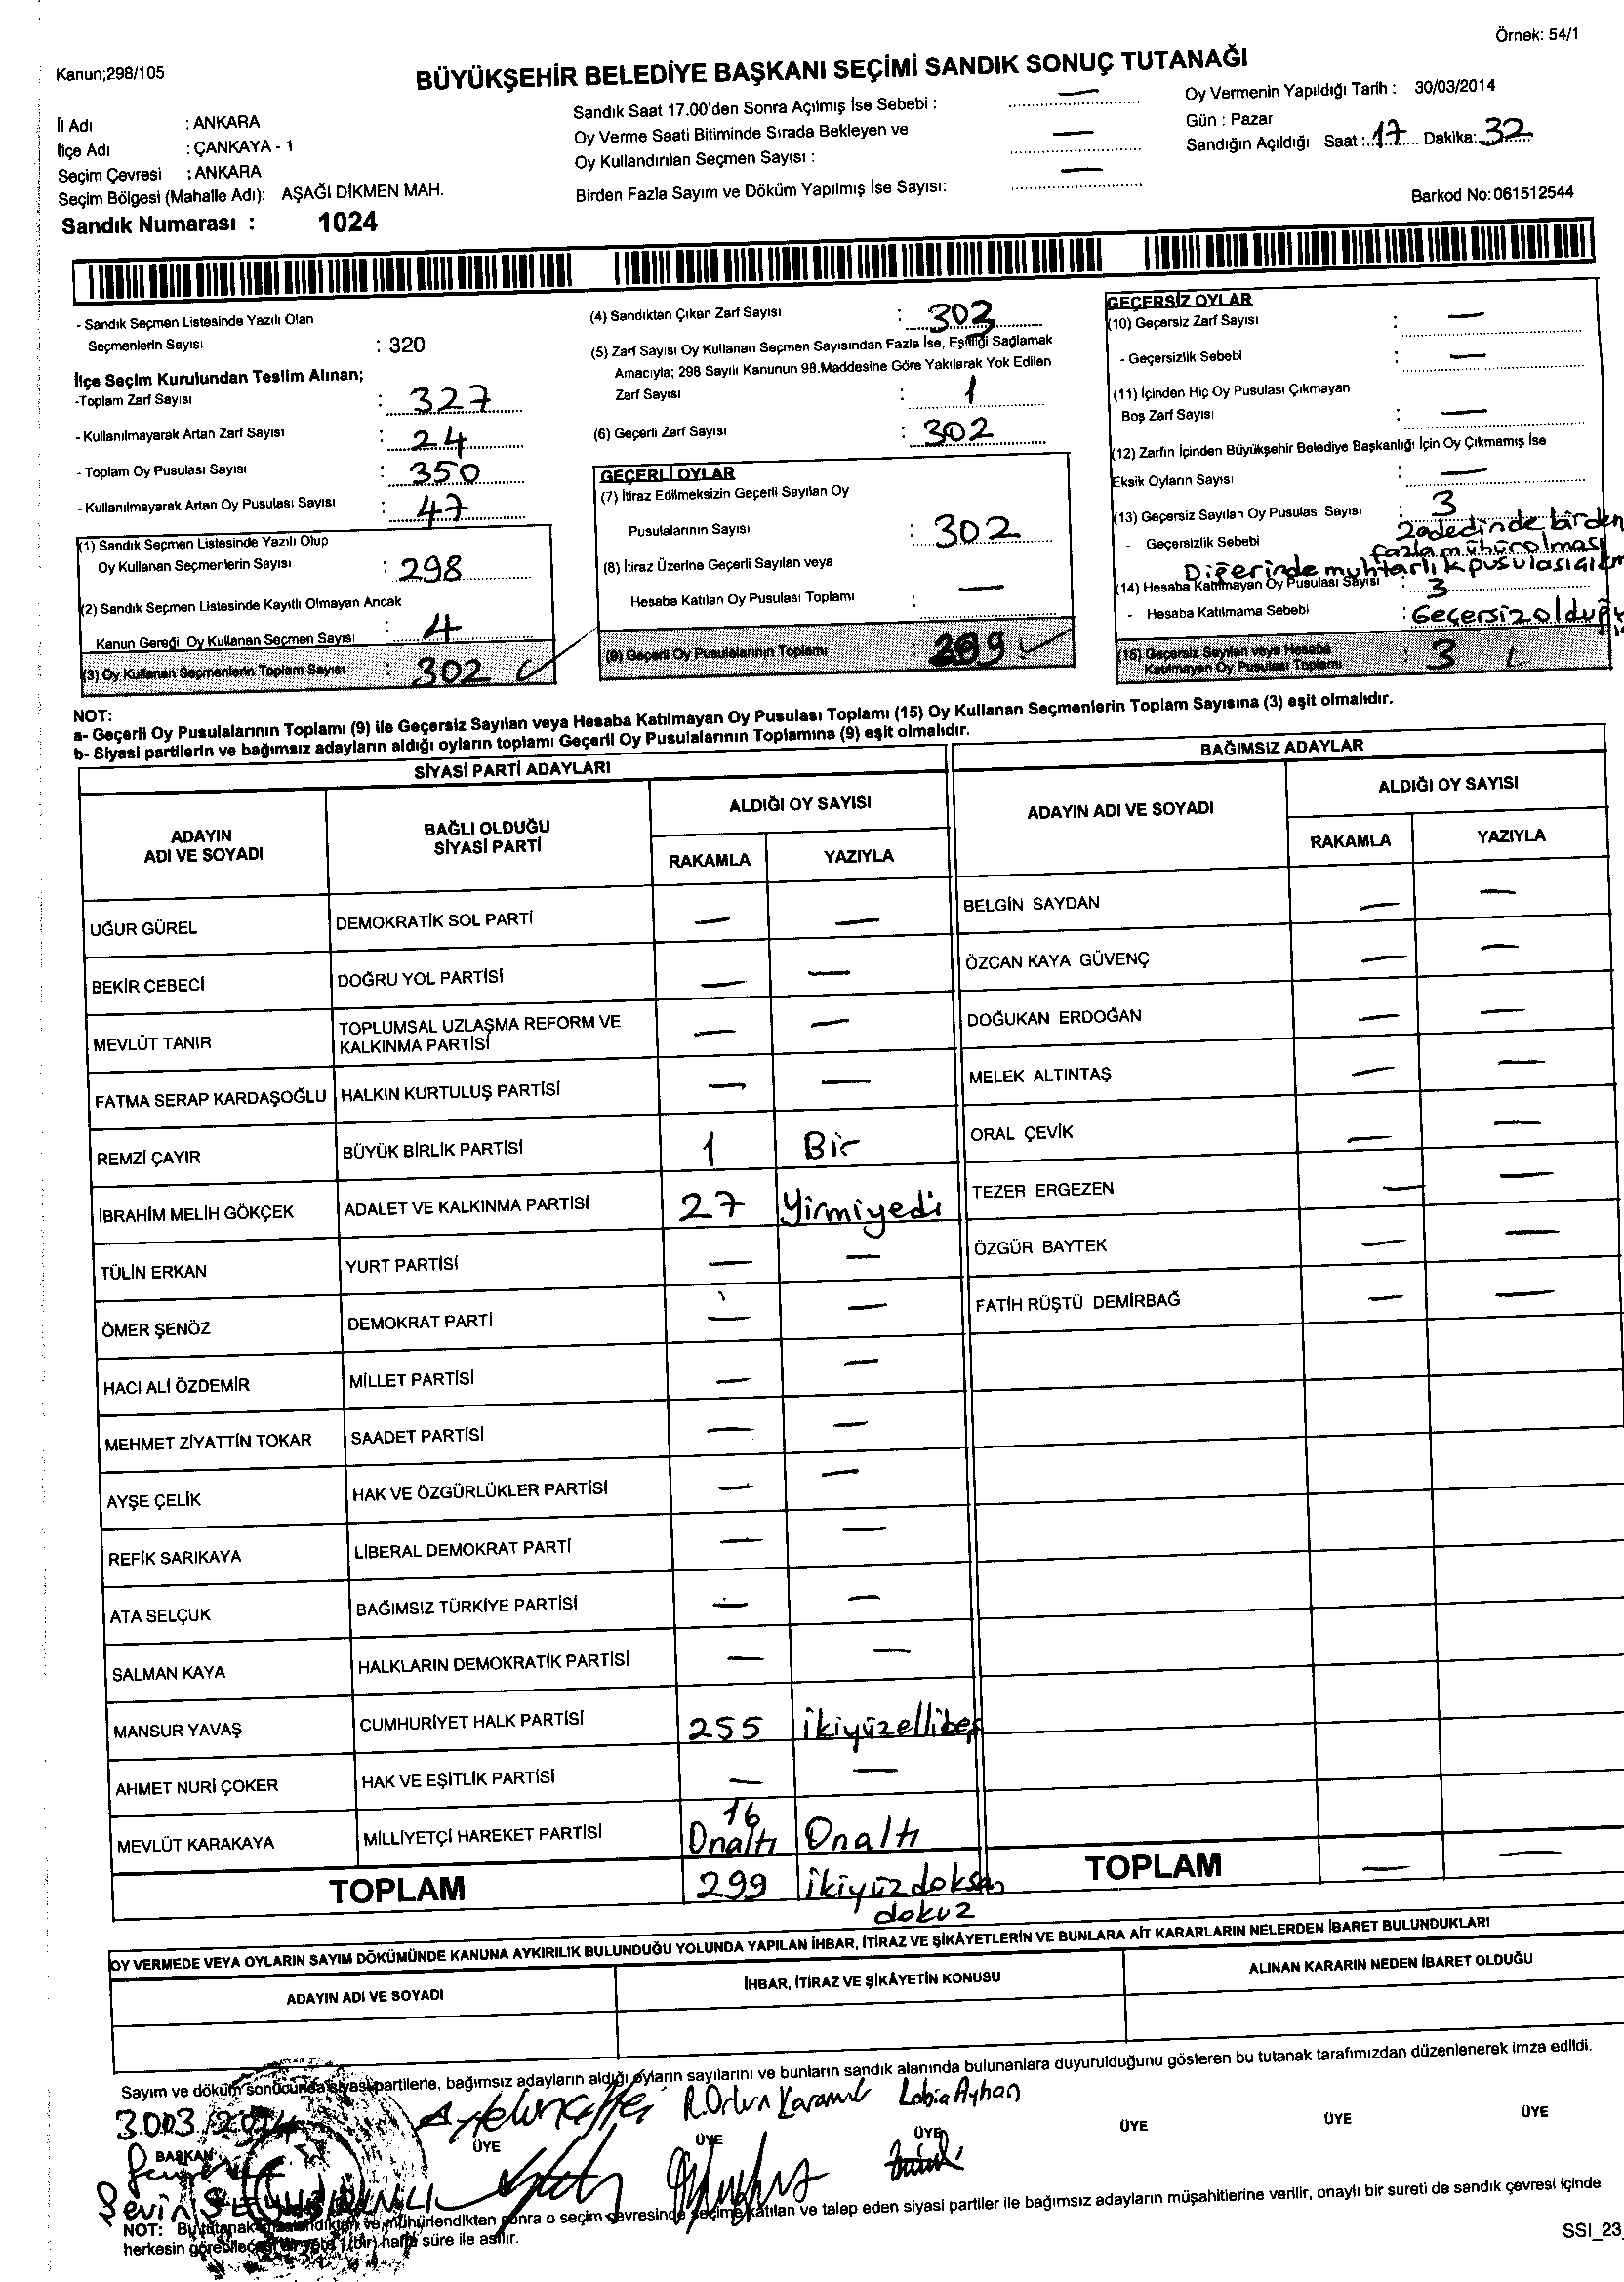 Örnek: 54/1
Kanun;298/105
BÜYÜKŞEHİR BELEDİYE BAŞKANI SEÇİMİ SANDIK SONUÇ TUTANAĞI
İl Adı : ANKARA
İlçe Adı : ÇANKAYA - 1
Seçim Çevresi : ANKARA
Seçim Bölgesi (Mahalle Adı): AŞAĞI DİKMEN MAH.
Sandık Numarası : 1024
Sandık Saat 17.00'den Sonra Açılmış İse Sebebi : —
Oy Verme Saati Bitiminde Sırada Bekleyen ve
Oy Kullandırılan Seçmen Sayısı : —
Birden Fazla Sayım ve Döküm Yapılmış İse Sayısı: —
Oy Vermenin Yapıldığı Tarih : 30/03/2014
Gün : Pazar
Sandığın Açıldığı Saat : 17 Dakika: 32
Barkod No: 061512544
- Sandık Seçmen Listesinde Yazılı Olan
Seçmenlerin Sayısı : 320
İlçe Seçim Kurulundan Teslim Alınan;
-Toplam Zarf Sayısı : 327
- Kullanılmayarak Artan Zarf Sayısı : 24
- Toplam Oy Pusulası Sayısı : 350
- Kullanılmayarak Artan Oy Pusulası Sayısı : 47
(1) Sandık Seçmen Listesinde Yazılı Olup
Oy Kullanan Seçmenlerin Sayısı : 298
(2) Sandık Seçmen Listesinde Kayıtlı Olmayan Ancak
Kanun Gereği Oy Kullanan Seçmen Sayısı : 4
(3) Oy Kullanan Seçmenlerin Toplam Sayısı : 302
(4) Sandıktan Çıkan Zarf Sayısı : 302
(5) Zarf Sayısı Oy Kullanan Seçmen Sayısından Fazla İse, Eşitliği Sağlamak
Amacıyla; 298 Sayılı Kanunun 98.Maddesine Göre Yakılarak Yok Edilen
Zarf Sayısı : 1
(6) Geçerli Zarf Sayısı : 302
GEÇERLİ OYLAR
(7) İtiraz Edilmeksizin Geçerli Sayılan Oy
Pusulalarının Sayısı : 302
(8) İtiraz Üzerine Geçerli Sayılan veya
Hesaba Katılan Oy Pusulası Toplamı : —
(9) Geçerli Oy Pusulalarının Toplamı : 299
GEÇERSİZ OYLAR
(10) Geçersiz Zarf Sayısı : —
- Geçersizlik Sebebi : —
(11) İçinden Hiç Oy Pusulası Çıkmayan
Boş Zarf Sayısı : —
(12) Zarfın İçinden Büyükşehir Belediye Başkanlığı İçin Oy Çıkmamış İse
Eksik Oyların Sayısı : —
(13) Geçersiz Sayılan Oy Pusulası Sayısı : 3
- Geçersizlik Sebebi 2 adedinde birden
fazla mühür olması
Diğerinde muhtarlık pusulası
(14) Hesaba Katılmayan Oy Pusulası Sayısı : 3
- Hesaba Katılmama Sebebi : Geçersiz
(15) Geçersiz Sayılan veya Hesaba
Katılmayan Oy Pusulası Toplamı : 3
NOT:
a- Geçerli Oy Pusulalarının Toplamı (9) ile Geçersiz Sayılan veya Hesaba Katılmayan Oy Pusulası Toplamı (15) Oy Kullanan Seçmenlerin Toplam Sayısına (3) eşit olmalıdır.
b- Siyasi partilerin ve bağımsız adayların aldığı oyların toplamı Geçerli Oy Pusulalarının Toplamına (9) eşit olmalıdır.
SİYASİ PARTİ ADAYLARI
ADAYIN ADI VE SOYADI BAĞLI OLDUĞU SİYASİ PARTİ ALDIĞI OY SAYISI
RAKAMLA YAZIYLA
UĞUR GÜREL DEMOKRATİK SOL PARTİ — —
BEKİR CEBECİ DOĞRU YOL PARTİSİ — —
MEVLÜT TANIR TOPLUMSAL UZLAŞMA REFORM VE KALKINMA PARTİSİ — —
FATMA SERAP KARDAŞOĞLU HALKIN KURTULUŞ PARTİSİ — —
REMZİ ÇAYIR BÜYÜK BİRLİK PARTİSİ 1 Bir
İBRAHİM MELİH GÖKÇEK ADALET VE KALKINMA PARTİSİ 27 Yirmiyedi
TÜLİN ERKAN YURT PARTİSİ — —
ÖMER ŞENÖZ DEMOKRAT PARTİ — —
HACI ALİ ÖZDEMİR MİLLET PARTİSİ — —
MEHMET ZİYATTİN TOKAR SAADET PARTİSİ — —
AYŞE ÇELİK HAK VE ÖZGÜRLÜKLER PARTİSİ — —
REFİK SARIKAYA LİBERAL DEMOKRAT PARTİ — —
ATA SELÇUK BAĞIMSIZ TÜRKİYE PARTİSİ — —
SALMAN KAYA HALKLARIN DEMOKRATİK PARTİSİ — —
MANSUR YAVAŞ CUMHURİYET HALK PARTİSİ 255 ikiyüzellibeş
AHMET NURİ ÇOKER HAK VE EŞİTLİK PARTİSİ — —
MEVLÜT KARAKAYA MİLLİYETÇİ HAREKET PARTİSİ 16 Onaltı Onaltı
TOPLAM 299 ikiyüzdoksan
dokuz
BAĞIMSIZ ADAYLAR
ADAYIN ADI VE SOYADI ALDIĞI OY SAYISI
RAKAMLA YAZIYLA
BELGİN SAYDAN — —
ÖZCAN KAYA GÜVENÇ — —
DOĞUKAN ERDOĞAN — —
MELEK ALTINTAŞ — —
ORAL ÇEVİK — —
TEZER ERGEZEN — —
ÖZGÜR BAYTEK — —
FATİH RÜŞTÜ DEMİRBAĞ — —
TOPLAM — —
OY VERMEDE VEYA OYLARIN SAYIM DÖKÜMÜNDE KANUNA AYKIRILIK BULUNDUĞU YOLUNDA YAPILAN İHBAR, İTİRAZ VE ŞİKÂYETLERİN VE BUNLARA AİT KARARLARIN NELERDEN İBARET BULUNDUKLARI
ADAYIN ADI VE SOYADI İHBAR, İTİRAZ VE ŞİKÂYETİN KONUSU ALINAN KARARIN NEDEN İBARET OLDUĞU
Sayım ve döküm sonucunda siyasi partilerle, bağımsız adayların aldığı oyların sayılarını ve bunların sandık alanında bulunanlara duyurulduğunu gösteren bu tutanak tarafımızdan düzenlenerek imza edildi.
Lobia Ayhan
BAŞKAN ÜYE ÜYE ÜYE ÜYE ÜYE ÜYE
Sevin
NOT: Bu tutanak ve mühürlendikten sonra o seçim çevresinde seçime katılan ve talep eden siyasi partiler ile bağımsız adayların müşahitlerine verilir, onaylı bir sureti de sandık çevresi içinde
herkesin 1(bir) hafta süre ile asılır.
SSI_23